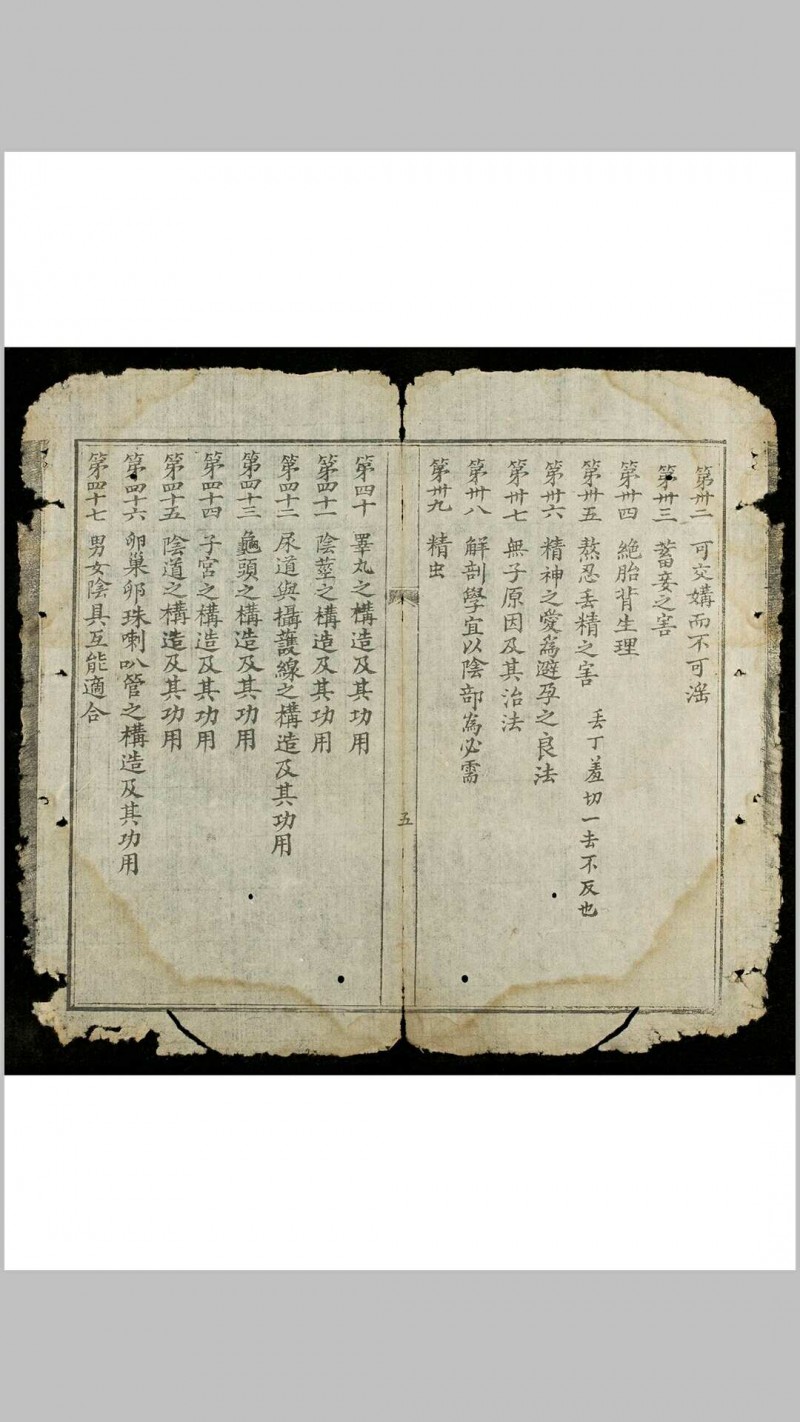 第卅二 可交媾而不可滛
第卅三 蓄妾之害
第卅四 絶胎背生理
第卅五 熬忍丢精之害 丢丁羞切一去不反也
第卅六 精神之愛為避孕之良法
第卅七 無子原因及其治法
第卅八 解剖學宜以陰部為必需
第卅九 精虫
五
第四十 睪丸之構造及其功用
第四十一 陰莖之構造及其功用
第四十二 尿道與攝護線之構造及其功用
第四十三 龜頭之構造及其功用
第四十四 子宮之構造及其功用
第四十五 陰道之構造及其功用
第四十六 卵巢卵珠喇叭管之構造及其功用
第四十七 男女陰具互能適合